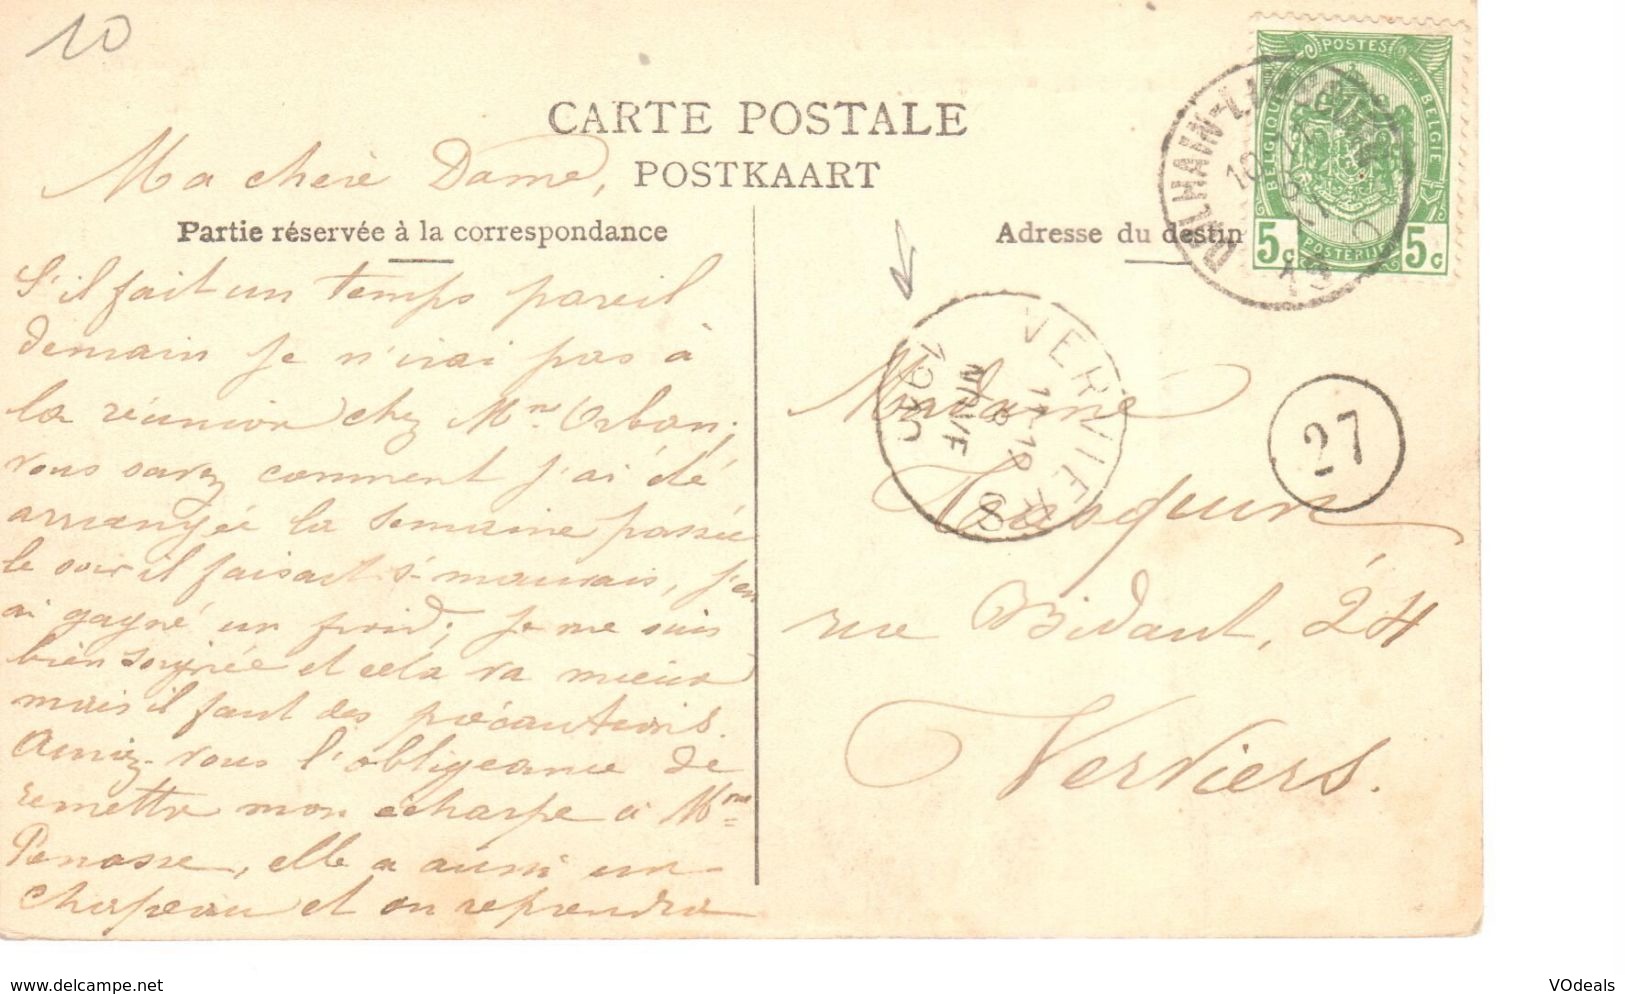 10
CARTE POSTALE
POSTKAART
Ma chère Dame,
Partie réservée à la correspondance
S'il fait un temps pareil
demain je n'irai pas à
la réunion chez Mme Orban;
vous savez comment j'ai été
arrangée la semaine passée
le soir il faisait si mauvais, j'en
ai gagné un froid; je me suis
bien soignée et cela va mieux
mais il faut des précautions.
Auriez-vous l'obligeance de
remettre mon écharpe à Mme
Penasse, elle a aussi un
chapeau et on reprendra
Adresse du destin
POSTES
BELGIQUE
BELGIE
5c
POSTERIJEN
5c
VERVIERS
11-12
8
NOVE
1905
27
Madame
rue Bidaut, 24
Verviers.
www.delcampe.net
VOdeals